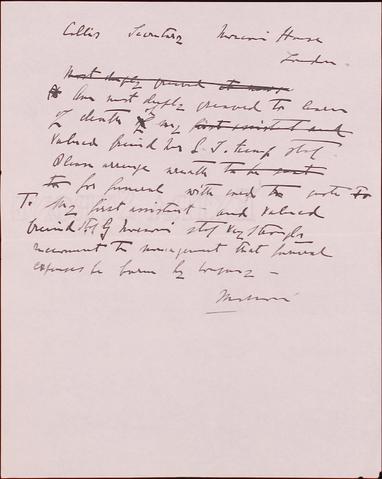 Collis Secretary Marconi House
London
Most deeply grieved at news
Am most deeply grieved to learn
of death of my first assistant and
valued friend Mr G. S. Kemp stop
Please arrange wreath to be sent
to for funeral with card to
To my first assistant and valued
friend stop G Marconi stop Very strongly
recommend to management that funeral
expenses be borne by company –
Marconi